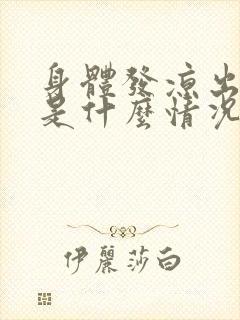 身體發涼出
是什麼情況
伊麗莎白